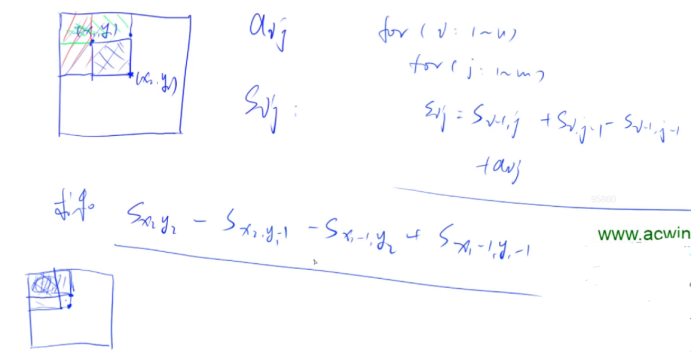 (x₁,y₁)
(x₂,y₂)
aᵢⱼ
Sᵢⱼ:
for (i: 1~n)
for (j: 1~m)
Sᵢⱼ = Sᵢ₋₁,ⱼ + Sᵢ,ⱼ₋₁ - Sᵢ₋₁,ⱼ₋₁
+ aᵢⱼ
Sx₂y₂ - Sx₂,y₁-1 - Sx₁-1,y₂ + Sx₁-1,y₁-1
www.acwin